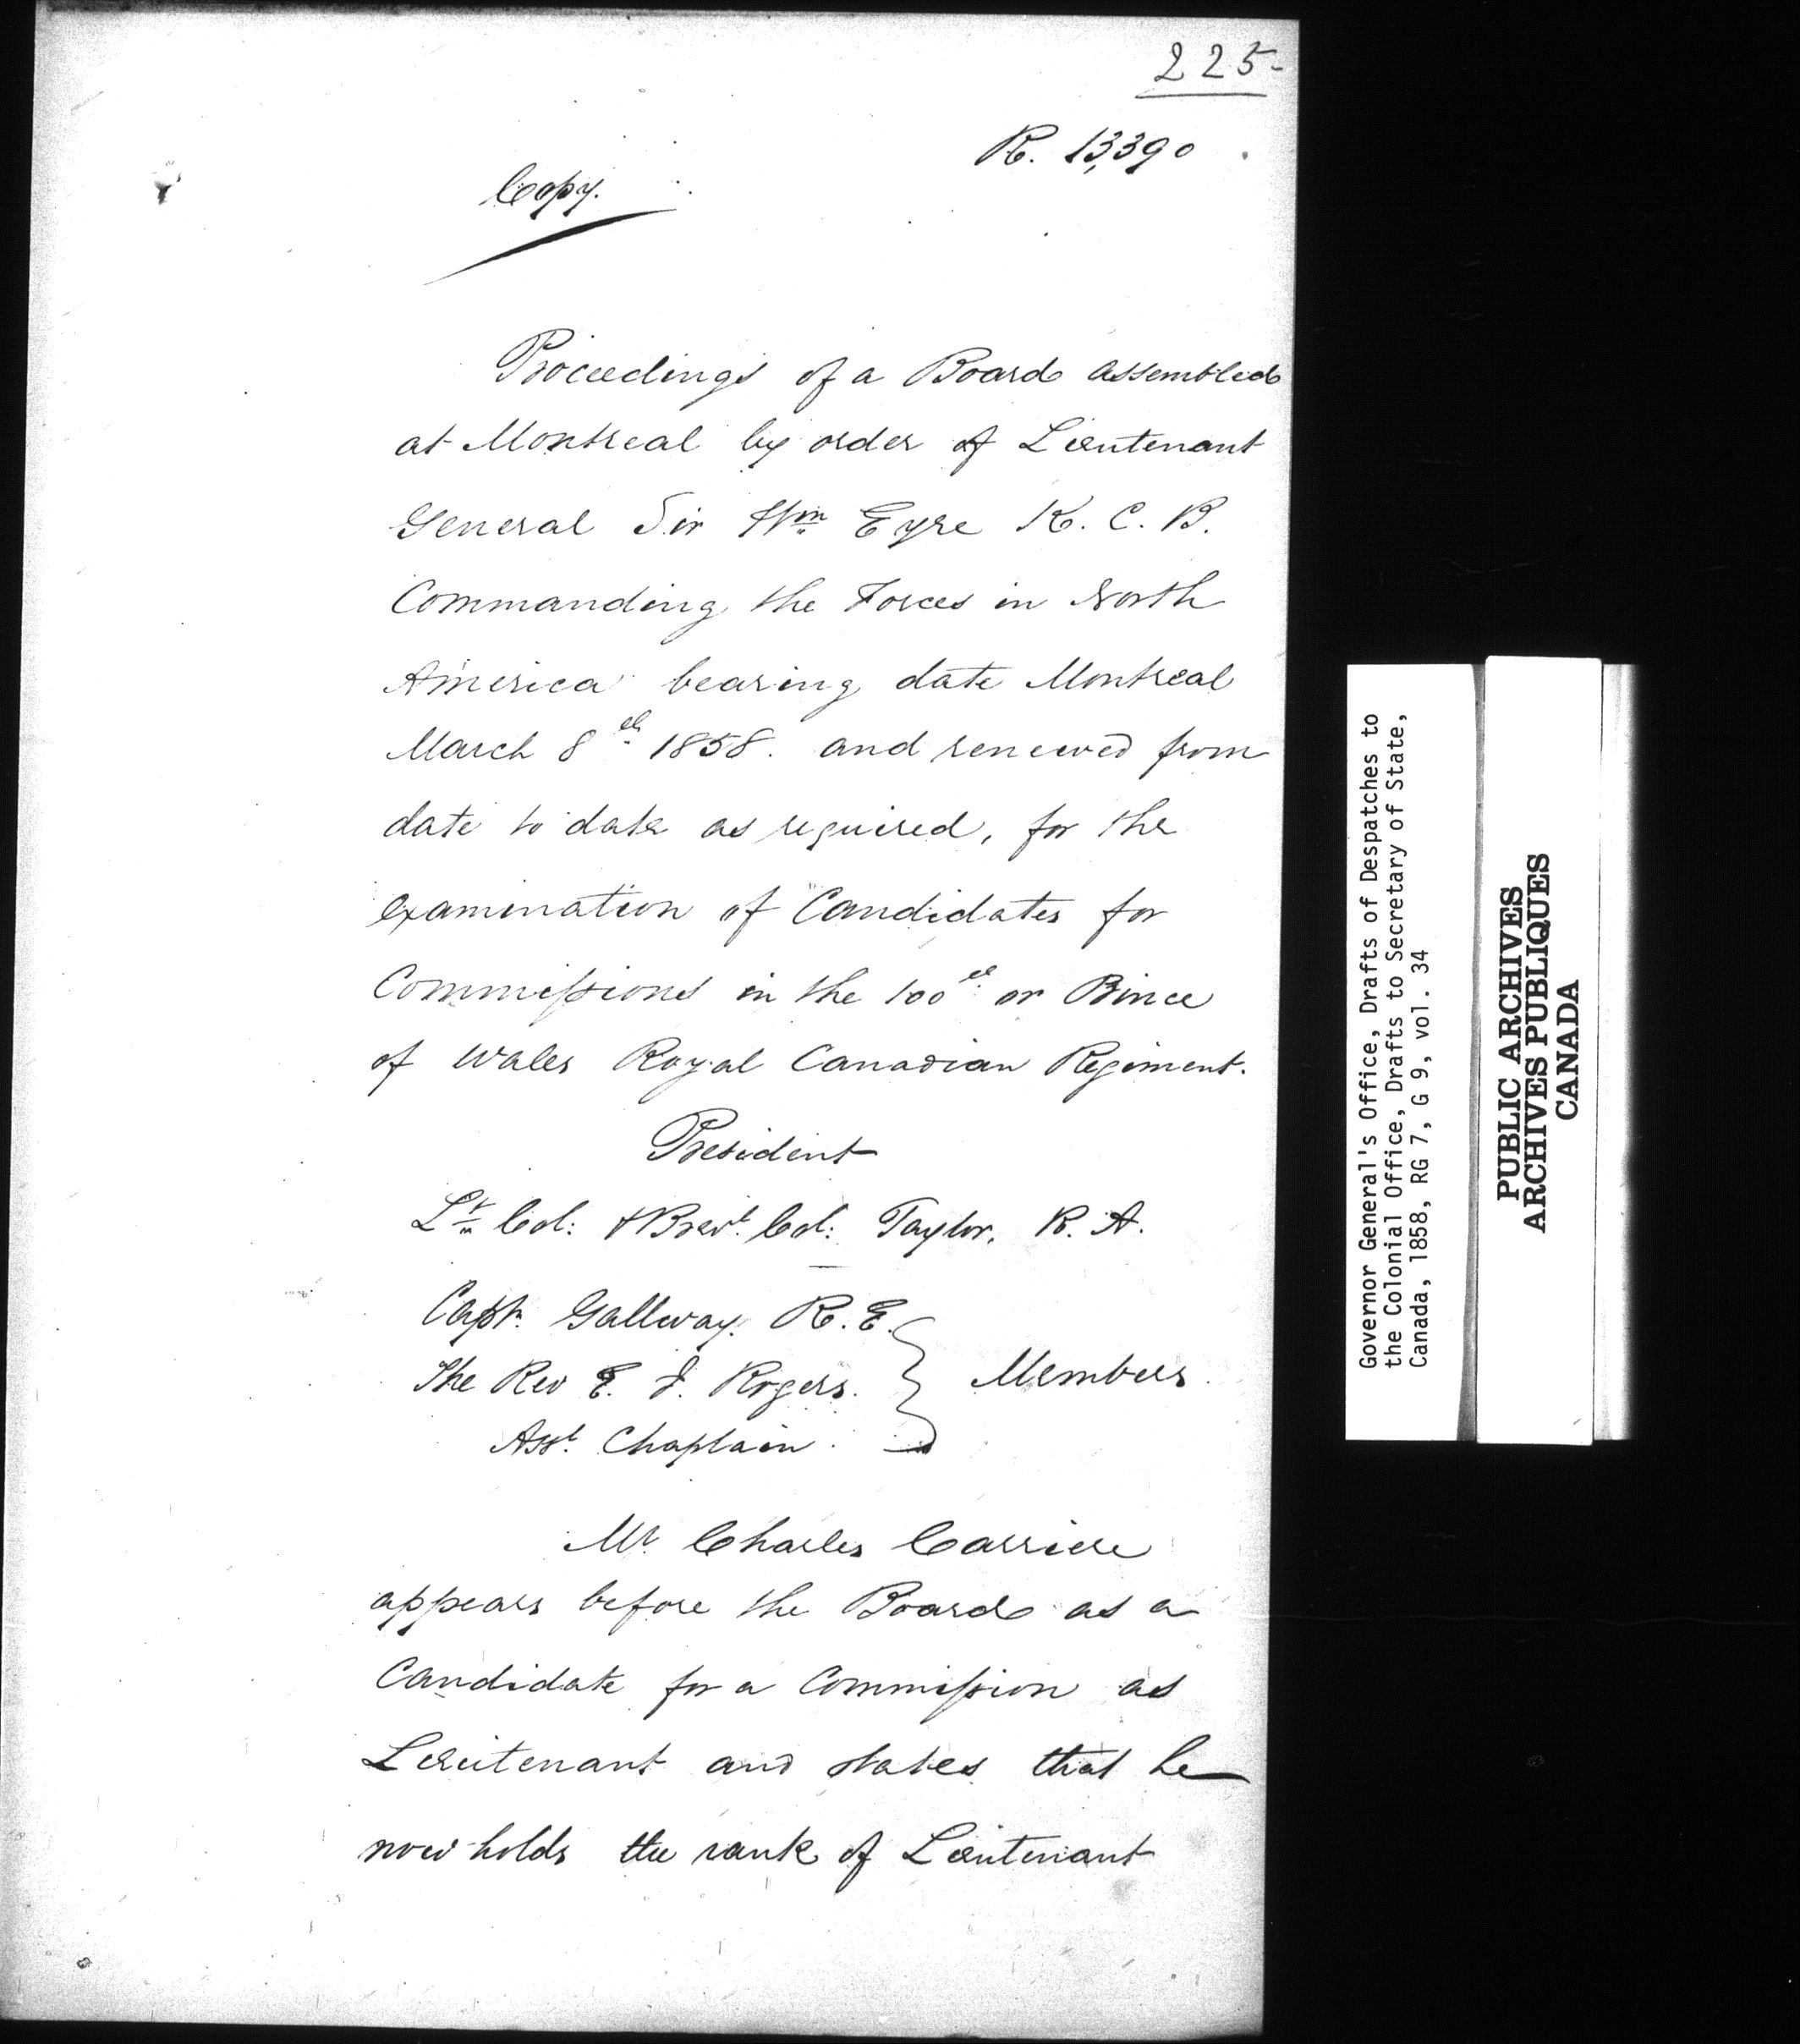 225-
R. 13,390
Copy.
Proceedings of a Board assembled
at Montreal by order of Lieutenant
General Sir Wm Eyre K. C. B.
Commanding the Forces in North
America bearing date Montreal
March 8th 1858. and renewed from
date to date as required, for the
examination of Candidates for
Commissions in the 100th or Prince
of Wales Royal Canadian Regiment.
President
Lt Col: & Brevt. Col: Taylor. R. A.
Capt. Gallway. R. E.
The Rev E. J. Rogers. Members.
Asst. Chaplain.
Mr. Charles Carriere
appears before the Board as a
Candidate for a Commission as
Lieutenant and states that he
now holds the rank of Lieutenant
Governor General's Office, Drafts of Despatches to
the Colonial Office, Drafts to Secretary of State,
Canada, 1858, RG 7, G 9, vol. 34
PUBLIC ARCHIVES
ARCHIVES PUBLIQUES
CANADA